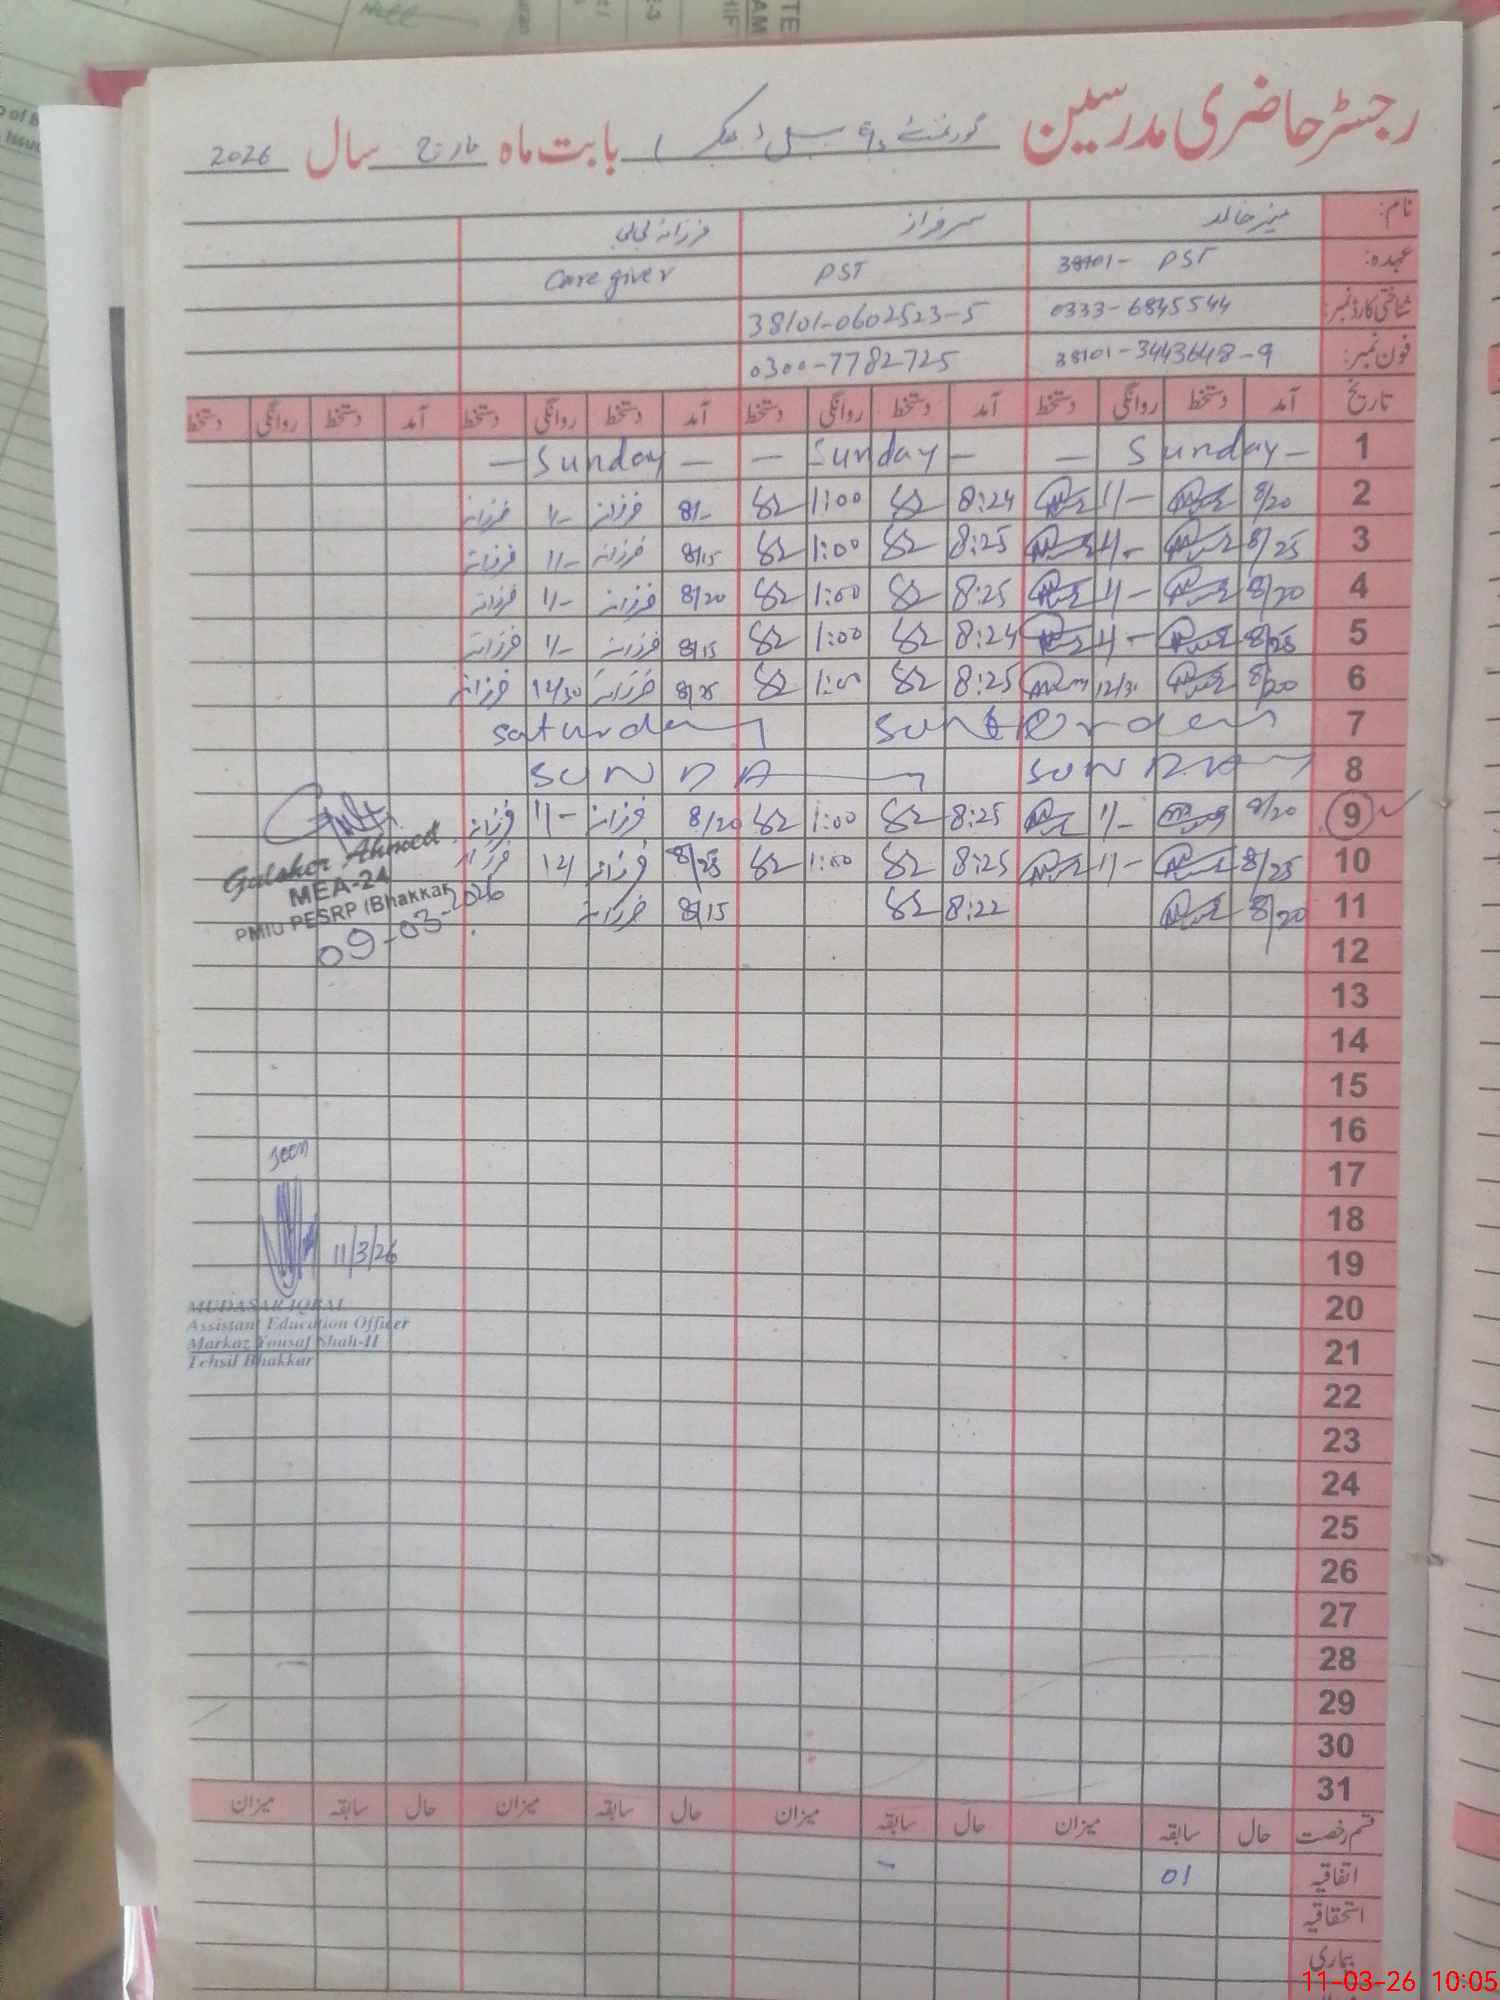 رجسٹر حاضری مدرسین گورنمنٹ بابت ماہ مارچ سال 2026
نام: منیر خالد سرفراز فرزانہ بی بی
عہدہ: 38101- PST PST Care giver
شناختی کارڈ نمبر: 0333-6845544 38101-0602523-5
فون نمبر: 38101-3443648-9 0300-7782725
تاریخ آمد دستخط روانگی دستخط آمد دستخط روانگی دستخط آمد دستخط روانگی دستخط آمد دستخط روانگی دستخط
1 Sunday Sunday Sunday
2 8/20 1/- 8:24 1:00 8/- فرزانہ 1/- فرزانہ
3 8/25 1/- 8:25 1:00 8/15 فرزانہ 1/- فرزانہ
4 8/20 1/- 8:25 1:00 8/20 فرزانہ 1/- فرزانہ
5 8/25 1/- 8:24 1:00 8/15 فرزانہ 1/- فرزانہ
6 8/20 12/30 8:25 1:00 8/25 فرزانہ 12/30 فرزانہ
7 saturday
8 SUNDAY SUNDA
9 8/20 1/- 8:25 1:00 8/20 فرزانہ 1/- فرزانہ
10 8/25 1/- 8:25 1:00 8/25 فرزانہ 12/ فرزانہ
11 8/20 8:22 8/15 فرزانہ
Gulsher Ahmed
MEA-24
PMIU PESRP (Bhakkar)
09-03-2026
12
13
14
15
16
17
18
19
20
21
22
23
24
25
26
27
28
29
30
31
Seen
11/3/26
MUDASAR IQBAL
Assistant Education Officer
Markaz Yousaf Shah-II
Tehsil Bhakkar
قسم رخصت حال سابقہ میزان حال سابقہ میزان حال سابقہ میزان حال سابقہ میزان
اتفاقیہ 01 -
استحقاقیہ
بیماری
11-03-26 10:05